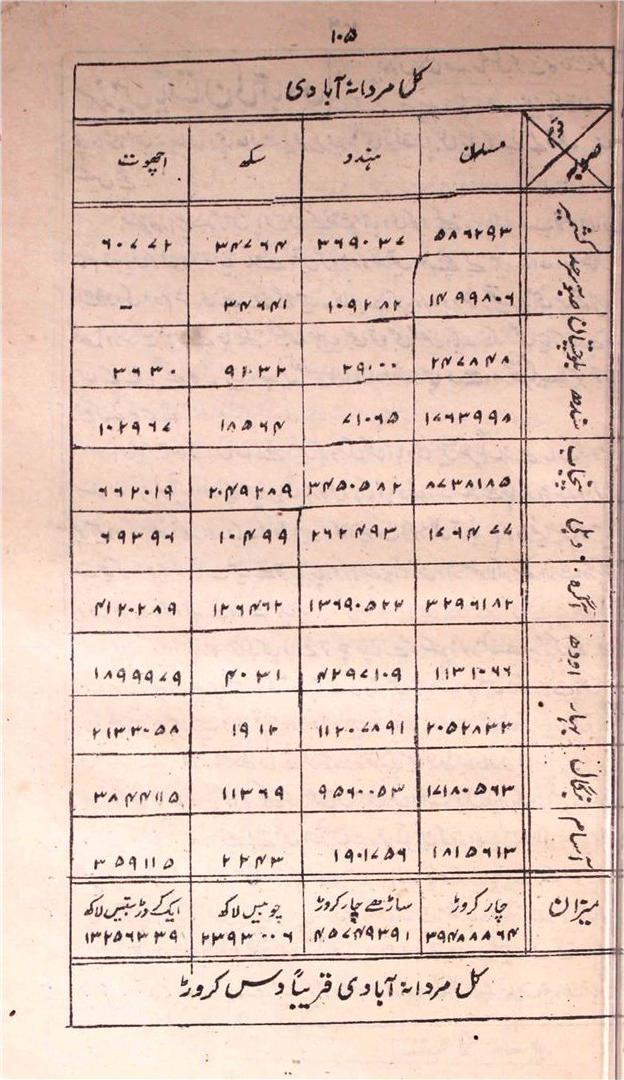 ۱۰۵
کل مردانہ آبادی
صوبہ مسلمان ہندو سکھ اچھوت
کشمیر ۵۸۶۲۹۳ ۳۶۹۰۳۷ ۳۴۷۶۴ ۶۰۷۷۲
صوبہ سرحد ۱۴۹۹۸۰۶ ۱۰۹۲۸۲ ۳۴۶۴۱ -
بلوچستان ۲۴۷۸۴۸ ۲۹۱۰۰ ۹۲۳۲ ۳۶۳۰
سندھ ۱۷۶۳۹۹۸ ۷۱۰۶۵ ۱۸۵۶۴ ۱۰۲۹۶۷
پنجاب ۸۷۳۸۱۸۵ ۳۴۵۰۵۸۲ ۲۰۴۹۲۸۹ ۶۶۲۰۱۹
دہلی ۱۷۶۴۷۷ ۲۶۲۴۹۳ ۱۰۴۹۹ ۶۹۳۹۶
آگرہ ۳۲۹۶۱۸۲ ۱۳۶۹۰۵۲۲ ۱۲۶۴۶۲ ۴۱۲۰۲۸۹
اودھ ۱۱۳۱۰۶۶ ۴۲۹۷۱۰۹ ۴۰۳۱ ۱۸۹۹۹۷۹
بہار ۲۰۵۲۸۳۳ ۱۱۲۰۷۸۹۱ ۱۹۱۲ ۲۱۳۳۰۵۸
بنگال ۱۷۱۸۰۵۶۳ ۹۵۶۰۰۵۳ ۱۱۳۶۹ ۳۸۴۴۱۱۵
آسام ۱۸۱۵۶۱۳ ۱۹۰۱۷۵۶ ۲۲۴۳ ۳۵۹۱۱۵
میزان چار کروڑ ساڑھے چار کروڑ چوبیس لاکھ ایک کروڑ بتیس لاکھ
۳۹۴۸۸۸۶۴ ۴۵۷۴۹۳۹۱ ۲۳۹۳۰۰۶ ۱۳۲۵۶۳۳۹
کل مردانہ آبادی قریباً دس کروڑ